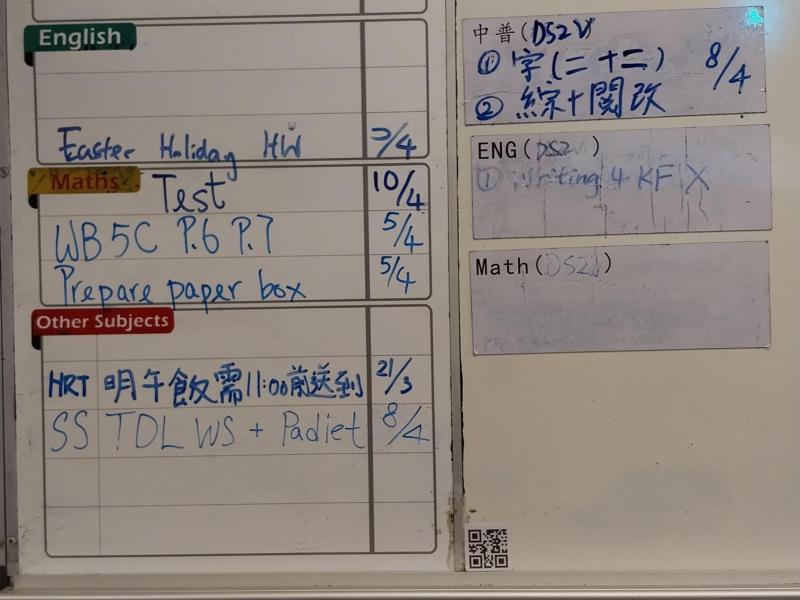 English
Easter Holiday HW 5/4
Maths
Test 10/4
WB 5C P.6 P.7 5/4
Prepare paper box 5/4
Other Subjects
HRT 明午飯需11:00前送到 21/3
SS TDL WS + Padlet 8/4
中普(DS2V)
① 字(二十二) 8/4
② 綜+閱改
ENG(DS2 )
① Writing 4 KF X
Math(DS2 )